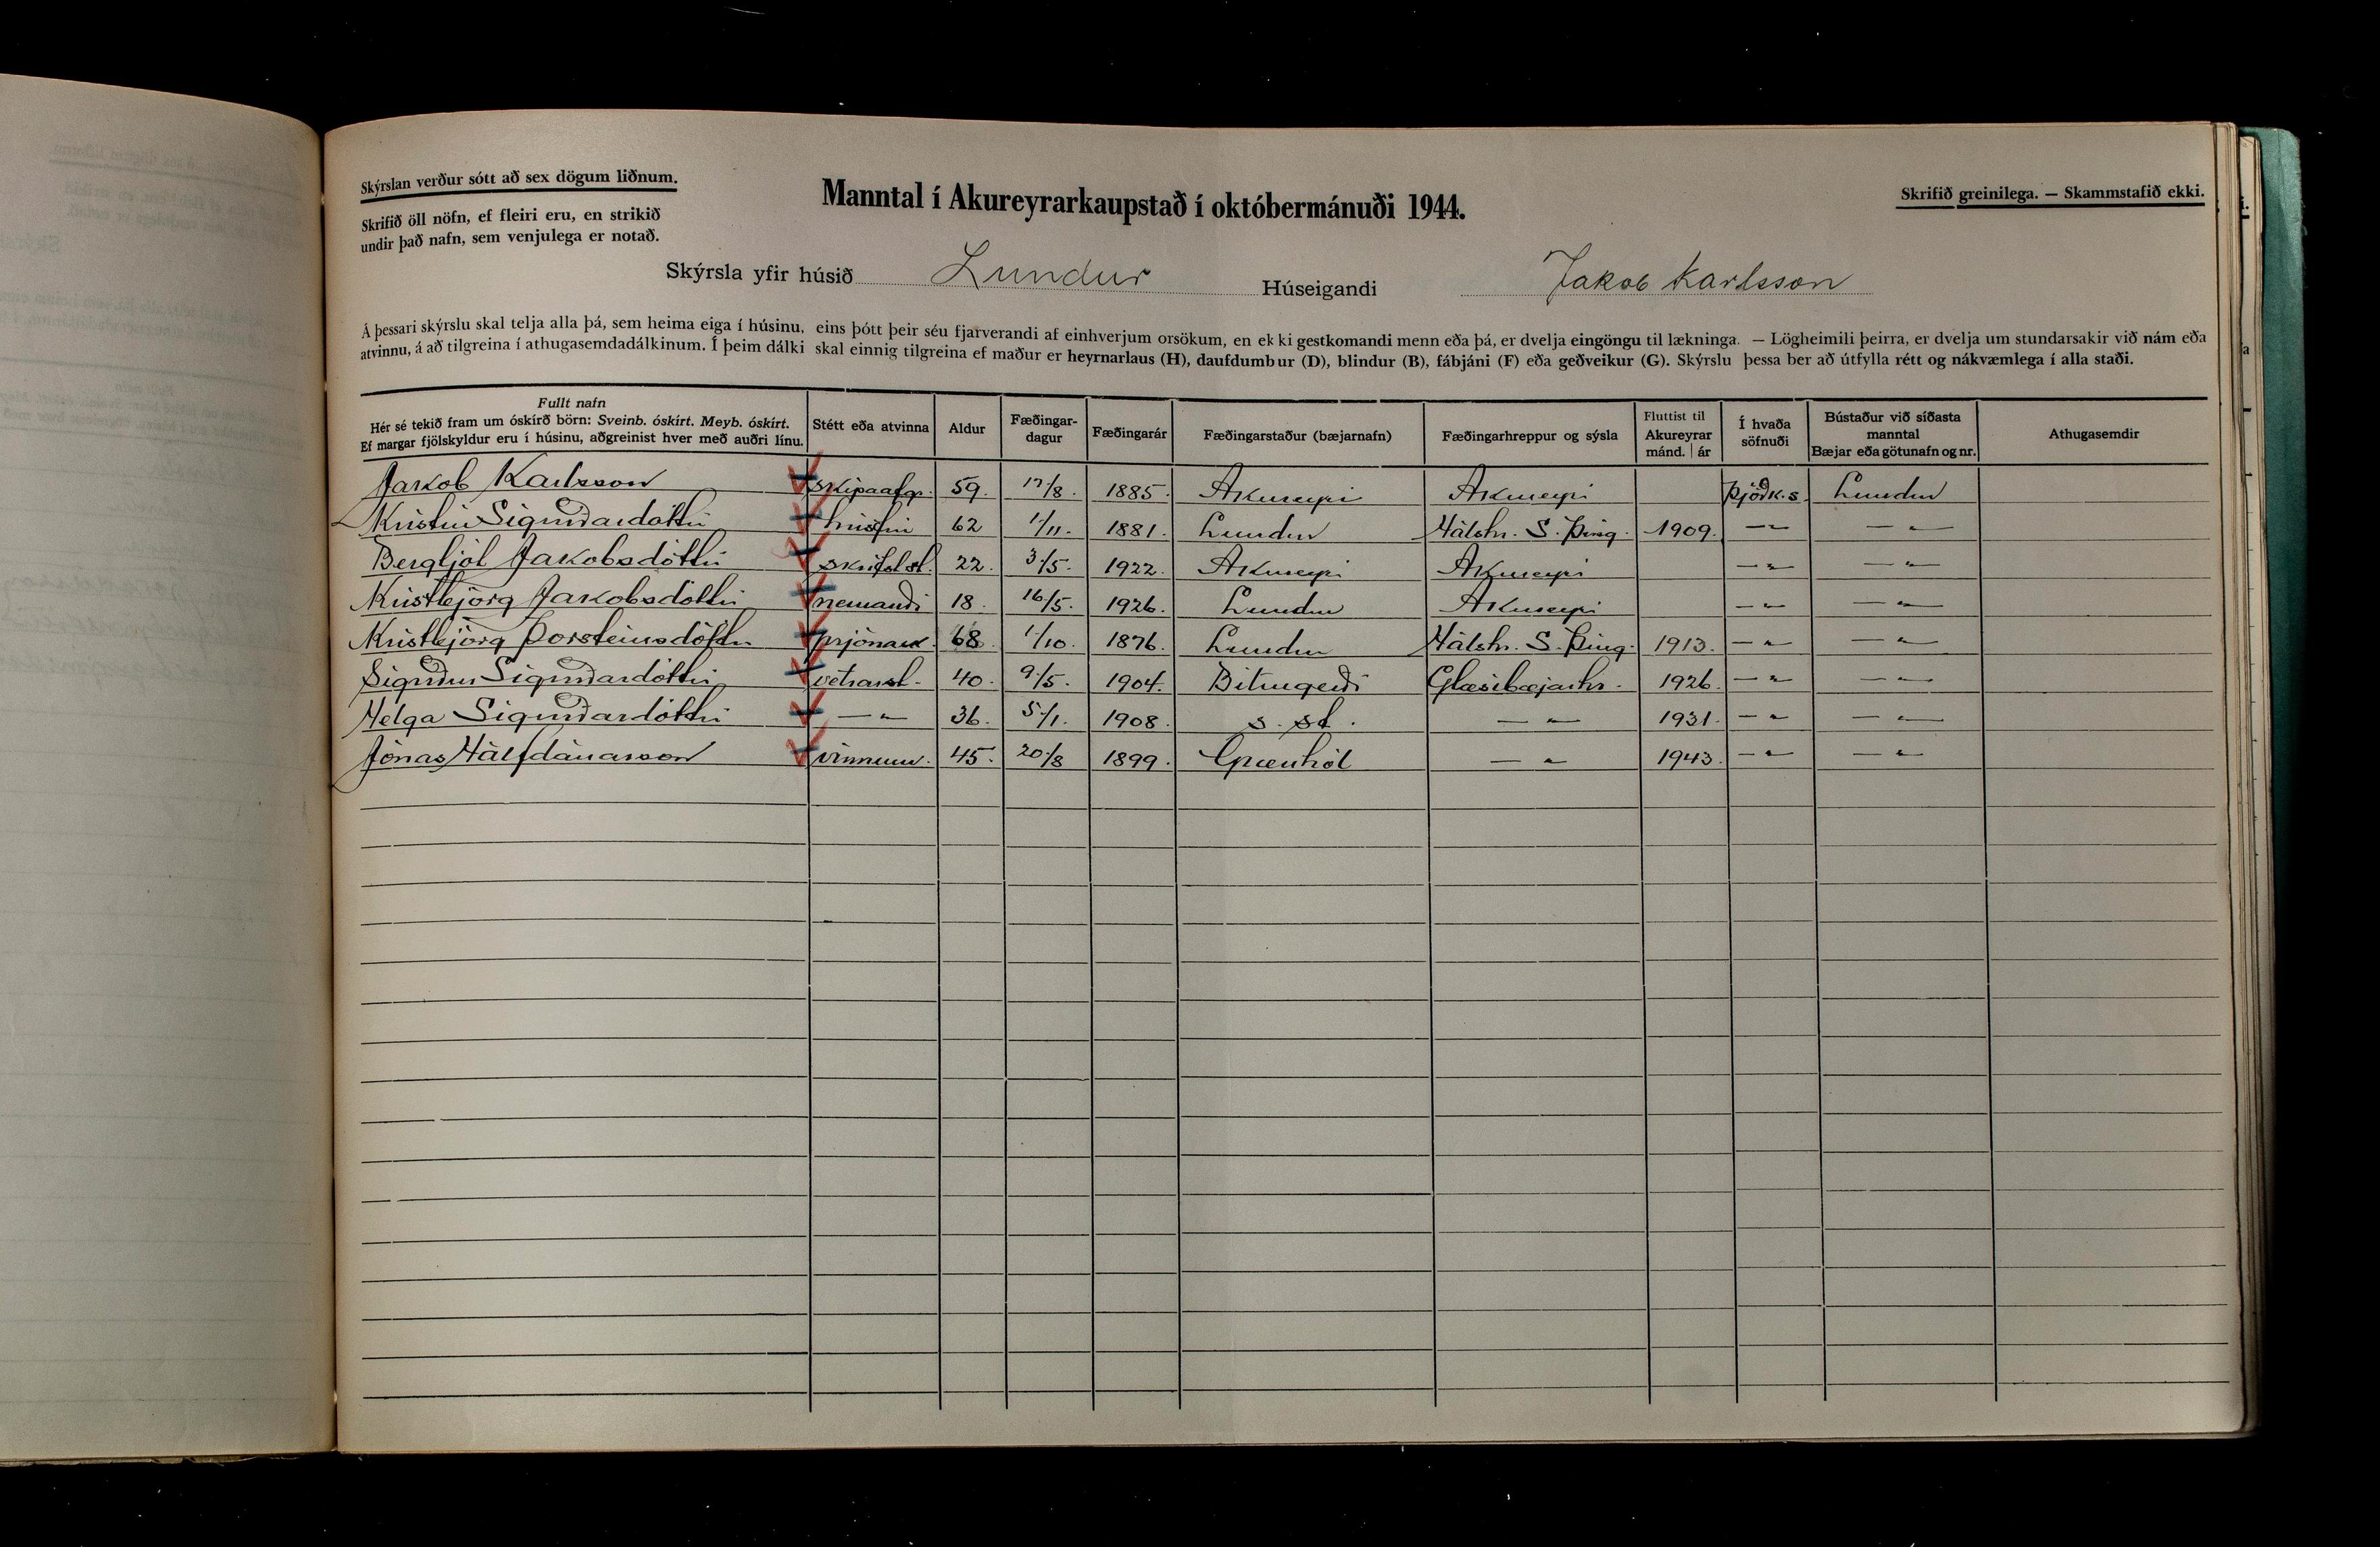 Skýrslan verður sótt að sex dögum liðnum.
Skrifið öll nöfn, ef fleiri eru, en strikið
undir það nafn, sem venjulega er notað.
Manntal í Akureyrarkaupstað í októbermánuði 1944.
Skrifið greinilega. — Skammstafið ekki.
Skýrsla yfir húsið Lundur Húseigandi Jakob Karlsson
Á þessari skýrslu skal telja alla þá, sem heima eiga í húsinu, eins þótt þeir séu fjarverandi af einhverjum orsökum, en ekki gestkomandi menn eða þá, er dvelja eingöngu til lækninga. — Lögheimili þeirra, er dvelja um stundarsakir við nám eða
atvinnu, á að tilgreina í athugasemdadálkinum. Í þeim dálki skal einnig tilgreina ef maður er heyrnarlaus (H), daufdumbur (D), blindur (B), fábjáni (F) eða geðveikur (G). Skýrslu þessa ber að útfylla rétt og nákvæmlega í alla staði.
Fullt nafn
Hér sé tekið fram um óskírð börn: Sveinb. óskírt. Meyb. óskírt.
Ef margar fjölskyldur eru í húsinu, aðgreinist hver með auðri línu.
Stétt eða atvinna
Aldur
Fæðingar-
dagur
Fæðingarár
Fæðingarstaður (bæjarnafn)
Fæðingarhreppur og sýsla
Fluttist til
Akureyrar
mánd. | ár
Í hvaða
söfnuði
Bústaður við síðasta
manntal
Bæjar eða götunafn og nr.
Athugasemdir
Jakob Karlsson skipaafgr. 59. 17/8. 1885. Akureyri Akureyri Þjóðk.s. Lundur
Kristín Sigurðardóttir húsfrú 62 1/11. 1881. Lundur Hálshr. S. Þing. 1909. —"— —"—
Bergljót Jakobsdóttir skrifst.st. 22. 3/5. 1922. Akureyri Akureyri —"— —"—
Kristbjörg Jakobsdóttir nemandi 18. 16/5. 1926. Lundur Akureyri —"— —"—
Kristbjörg Þorsteinsdóttir prjónak. 68 1/10. 1876. Lundur Hálshr. S. Þing. 1913. —"— —"—
Sigurður Sigurðardóttir vetrarst. 40. 9/5. 1904. Bitrugerði Glæsibæjarhr. 1926. —"— —"—
Helga Sigurðardóttir —"— 36. 5/1. 1908. s. st. —"— 1931. —"— —"—
Jónas Hálfdánarson vinnum. 45. 20/8 1899. Grænhól —"— 1943. —"— —"—